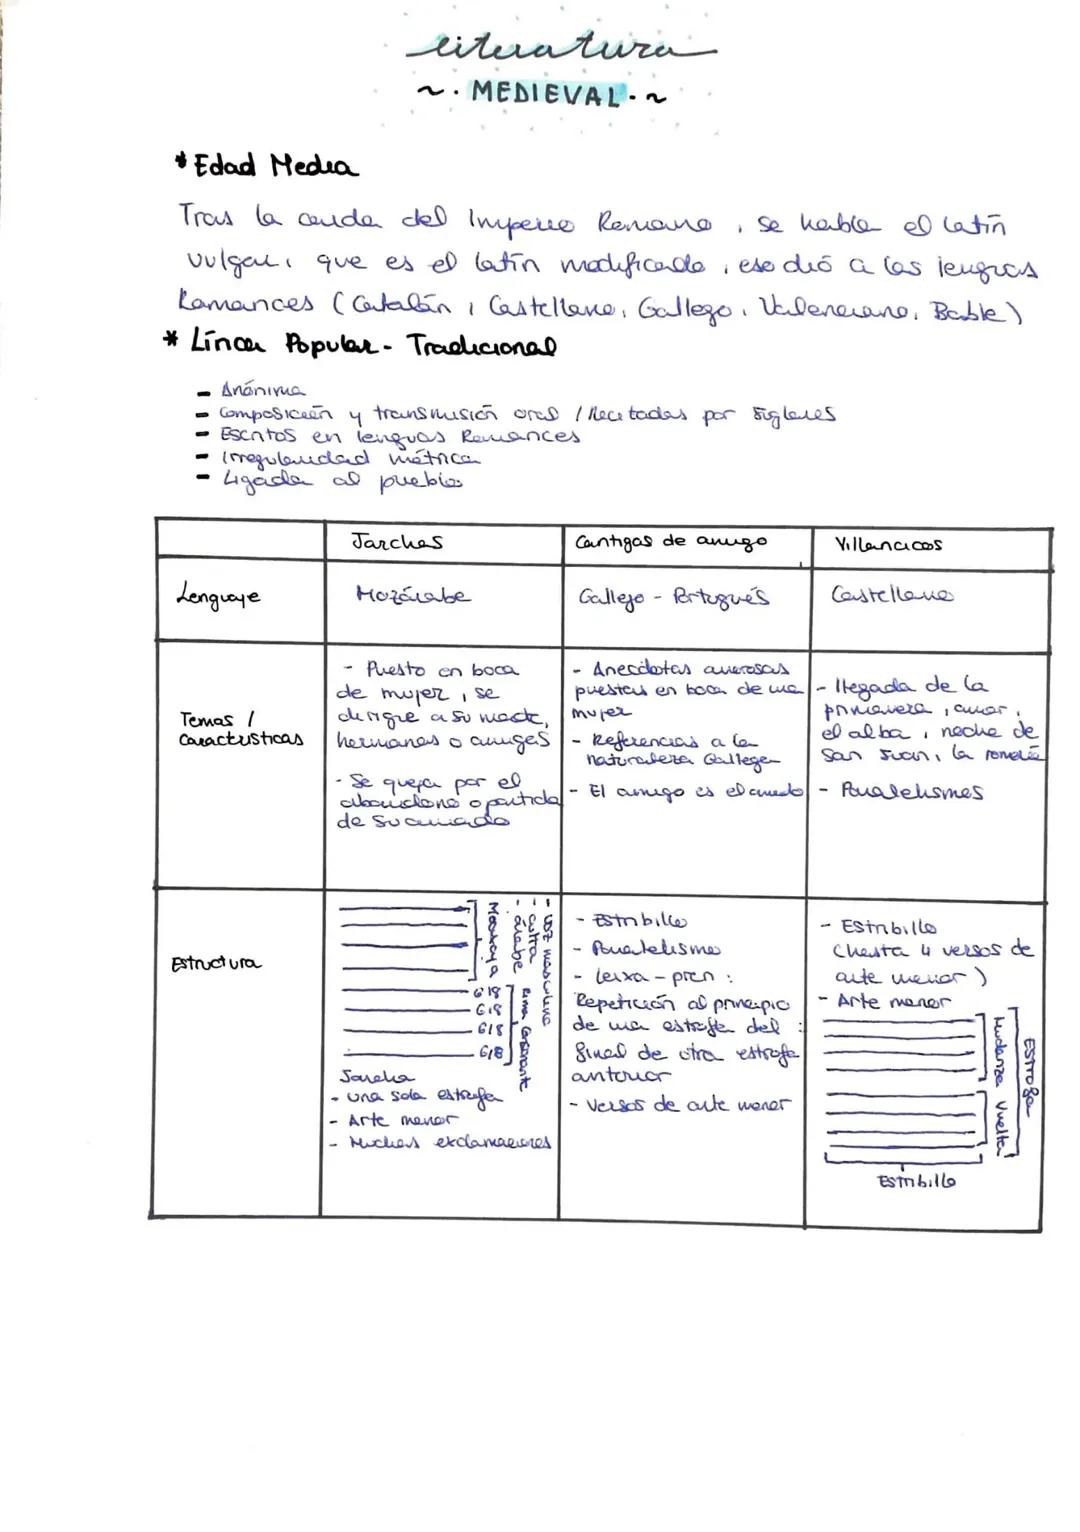 literatura
~· MEDIEVAL ·~
* Edad Media
Tras la caída del Imperio Romano, se habla el latín
vulgar, que es el latín modificado, eso dió a las lenguas
Romances (Catalán, Castellano, Gallego, Valenciano, Bable)
* Línea Popular - Tradicional
- Anónima
- Composición y transmisión oral / Recitadas por juglares
- Escritos en lenguas Romances
- Irregularidad métrica
- Ligada al pueblo
Jarchas
Cantigas de amigo
Villancicos
Lenguaje
Mozárabe
Gallego - Portugués
Castellano
Temas /
Características
- Puesto en boca
de mujer, se
dirigre a su madre,
hermanas o amigas
- Se queja por el
abandono o partida
de su amado
- Anécdotas amorosas
puestas en boca de una
mujer
- Referencias a la
naturaleza Gallega
- El amigo es el amado
- llegada de la
primavera, amor,
el alba, noche de
San Juan, la romería
- Paralelismos
Estructura
Moaxaya
- árabe
- culta
- voz masculina
6/8
6/8
6/8
6/8
Rima Consonante
Jarcha
- una sola estrofa
- Arte menor
- Muchas exclamaciones
- Estribillo
- Paralelismo
- leixa-pren:
Repetición al principio
de una estrofa del
final de otra estrofa
anterior
- Versos de arte menor
- Estribillo
(hasta 4 versos de
arte menor)
- Arte menor
Mudanza
Vuelta
ESTROFA
Estribillo